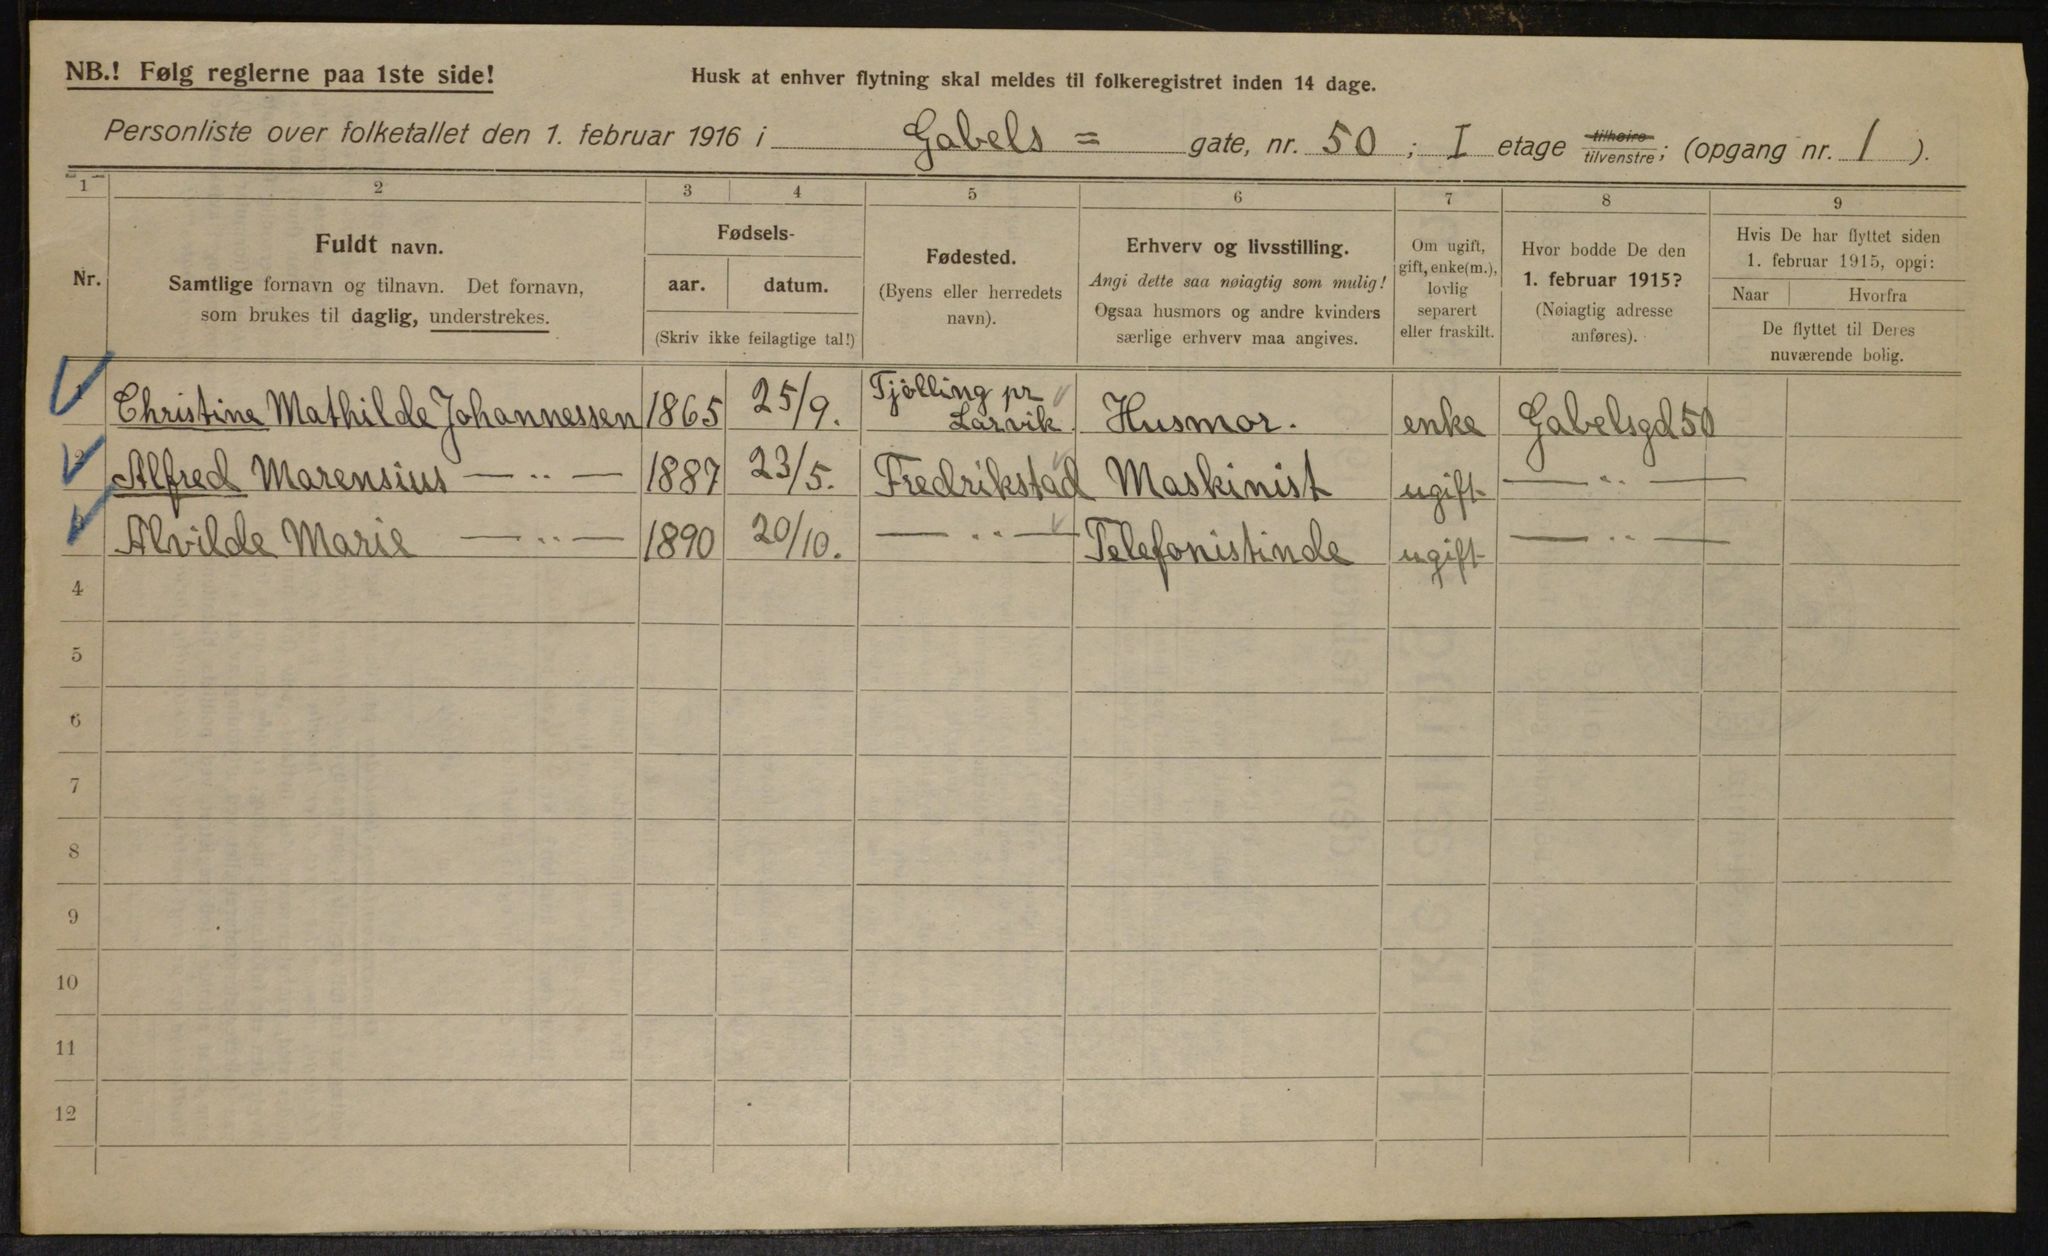 NB.! Følg reglerne paa 1ste side!
Husk at enhver flytning skal meldes til folkeregistret inden 14 dage.
Personliste over folketallet den 1. februar 1916 i Gabels = gate, nr. 50; I etage tilhøire tilvenstre; (opgang nr. 1).
1 2 3 4 5 6 7 8 9
Nr.
Fuldt navn.
Samtlige fornavn og tilnavn. Det fornavn,
som brukes til daglig, understrekes.
Fødsels-
aar. datum.
(Skriv ikke feilagtige tal!)
Fødested.
(Byens eller herredets
navn).
Erhverv og livsstilling.
Angi dette saa nøiagtig som mulig!
Ogsaa husmors og andre kvinders
særlige erhverv maa angives.
Om ugift,
gift, enke(m.),
lovlig
separert
eller fraskilt.
Hvor bodde De den
1. februar 1915?
(Nøiagtig adresse
anføres).
Hvis De har flyttet siden
1. februar 1915, opgi:
Naar Hvorfra
De flyttet til Deres
nuværende bolig.
1 Christine Mathilde Johannessen 1865 25/9. Tjölling pr Larvik Husmor. enke Gabelsgd 50
2 Alfred Marensius — ·· — 1887 23/5. Fredrikstad Maskinist ugift — ·· —
3 Alvilde Marie — ·· — 1890 20/10. — ·· — Telefonistinde ugift — ·· —
4
5
6
7
8
9
10
11
12